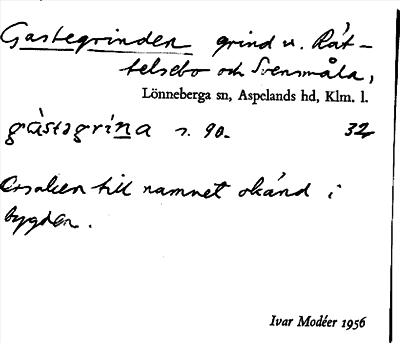 Gastegrinden grind v. Råt-
telsebo och Svensmåla,
Lönneberga sn, Aspelands hd, Klm. l.
gàstəgrína s. 90. 32
Orsaken till namnet okänd i
bygden.
Ivar Modéer 1956